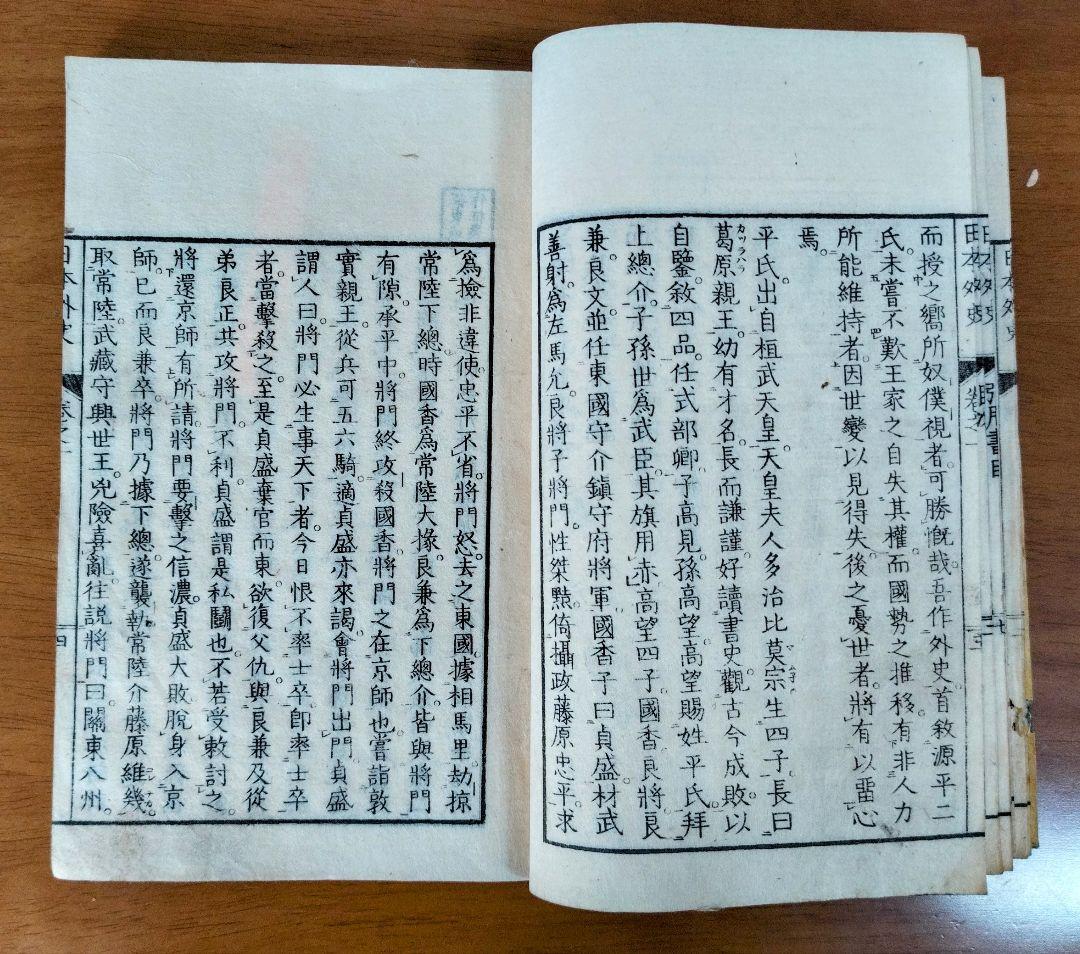 而授之嚮所奴僕視者可勝慨哉吾作外史首敘源平二
氏未嘗不歎王家之自失其權而國勢之推移有非人力
所能維持者因世變以見得失後之憂世者將有以畱心
焉
平氏出自桓武天皇天皇夫人多治比莫宗生四子長曰
葛原親王幼有才名長而謙謹好讀書史觀古今成敗以
カツラハラ
自鑒敘四品任式部卿子高見孫高望高望賜姓平氏拜
上總介子孫世爲武臣其旗用赤高望四子國香良將良
兼良文並任東國守介鎭守府將軍國香子曰貞盛材武
善射爲左馬允良將子將門性桀黠倚攝政藤原忠平求
爲檢非違使忠平不省將門怒去之東國據相馬里劫掠
常陸下總時國香爲常陸大掾良兼爲下總介皆與將門
有隙承平中將門終攻殺國香將門之在京師也嘗詣敦
實親王從兵可五六騎適貞盛亦來謁會將門出門貞盛
謂人曰將門必生事天下者今日恨不率士卒卽率士卒
者當擊殺之至是貞盛棄官而東欲復父仇與良兼及從
弟良正共攻將門不利貞盛謂是私鬭也不若受敕討之
將還京師有所請將門要擊之信濃貞盛大敗脫身入京
師已而良兼卒將門乃據下總遂襲執常陸介藤原維幾
取常陸武藏守興世王兇險喜亂往說將門曰關東八州
日本外史
卷之一
四
日本外史
引用書目